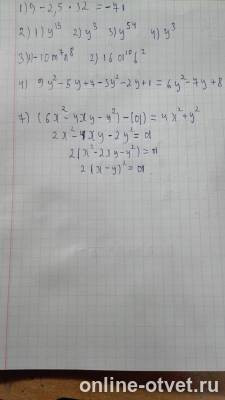 1) 9 - 2,5 · 32 = -71
2) 1) y¹³ 2) y³ 3) y⁵⁴ 4) y³
3) 1) -10m⁷n⁸ 2) 16a¹⁰b²
4) 9y² - 5y + 7 - 3y² - 2y + 1 = 6y² - 7y + 8
7) (6x² - 4xy - y²) - (a) = 4x² + y²
2x² - 4xy - 2y² = a
2(x² - 2xy - y²) = a
2(x - y)² = a
online-otvet.ru